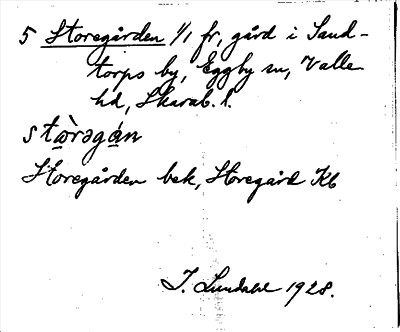 5 Storegården 1/1 fr, gård i Sand-
torps by, Eggby sn, Valle
hd, Skarab. l.
stòrəgán
Storegården bek, Storegård Kb
I. Lundahl 1928.